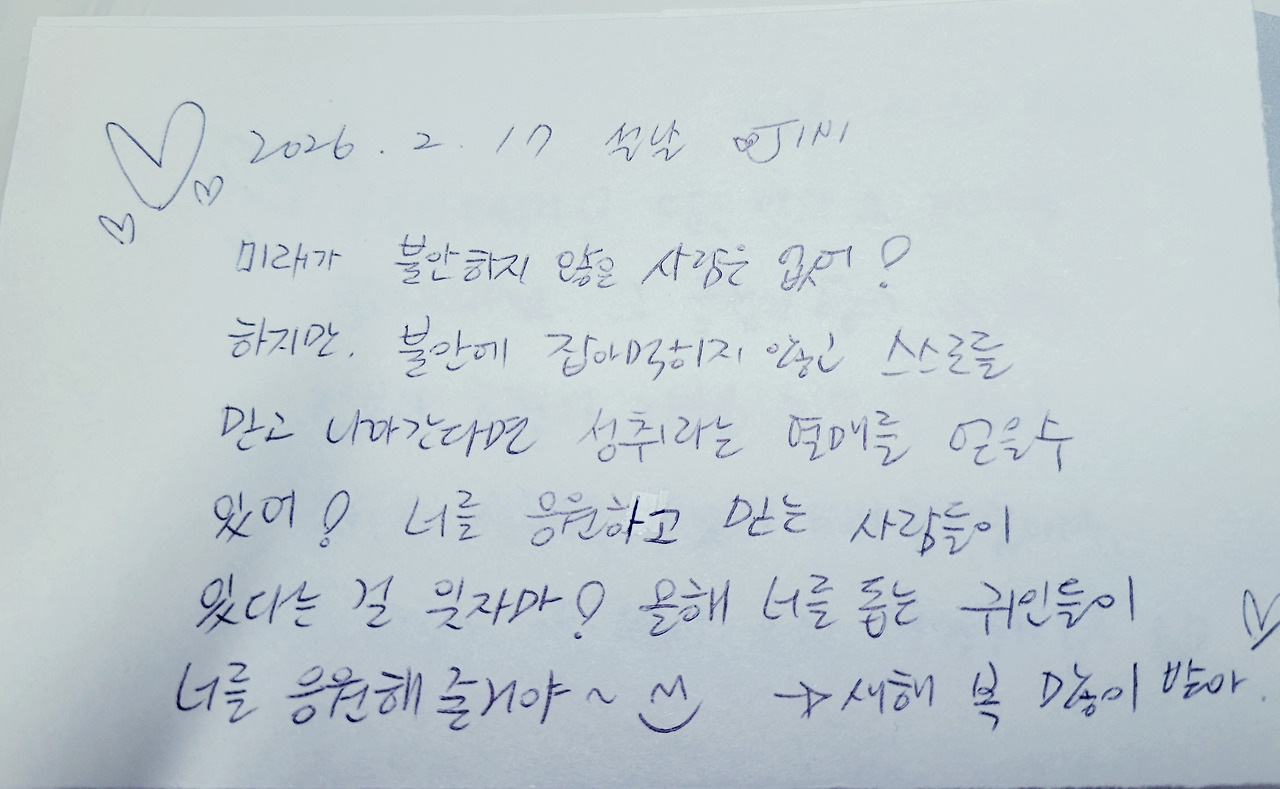 2026. 2. 17 설날 JINI
미래가 불안하지 않은 사람은 없어!
하지만, 불안에 잡아먹히지 않고 스스로를
믿고 나아간다면 성취라는 열매를 얻을수
있어! 너를 응원하고 믿는 사람들이
있다는 걸 잊지마! 올해 너를 돕는 귀인들이
너를 응원해 줄거야~ → 새해 복 많이 받아.